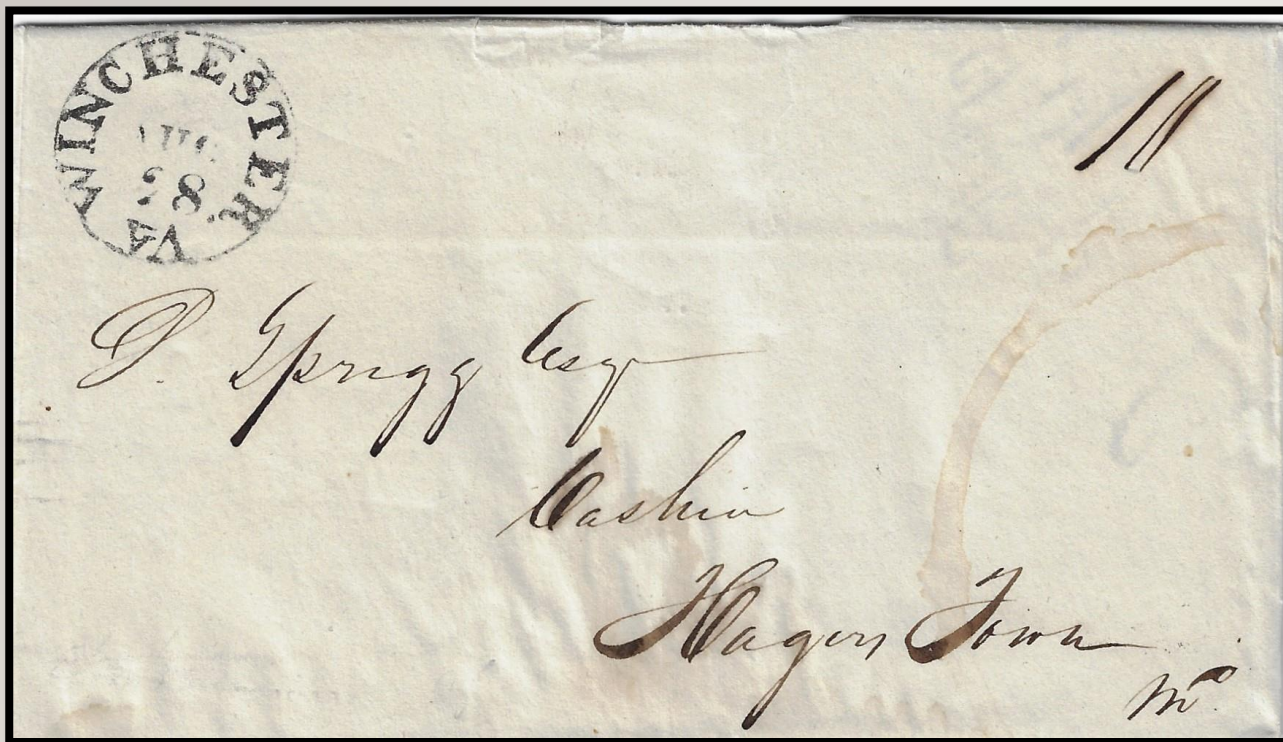 WINCHESTER VA
AUG
28
10
D. Sprigg Esqr
Cashier
Hagers Town
Md